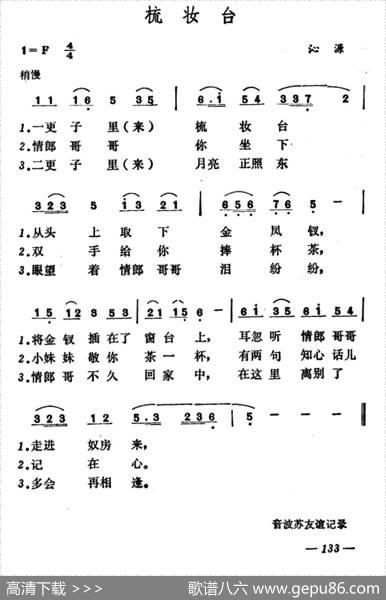 梳妆台
1=F 4/4 沁源
稍慢
1 1 1 6 5 3 5 | 6. 1 5 4 3 3 7 2 |
1.一更子里(来) 梳妆台
2.情郎哥哥 你坐下
3.二更子里(来) 月亮正照东
3 2 3 5 1 3 2 1 | 6 5 6 7 6 5 - - |
1.从头上取下 金凤钗,
2.双手给你 捧杯茶,
3.眼望着情郎哥哥 泪纷纷,
1 5 1 2 3 5 3 | 2 2 1 1 5 6 - | 6 1 3 5 6 1 5 4 |
1.将金钗插在了窗台上, 耳忽听情郎哥哥
2.小妹妹敬你茶一杯, 有两句知心话儿
3.情郎哥不久回家中, 在这里离别了
3 2 3 1 2 5. 3 2 3 6 | 5 - - - |
1.走进奴房来,
2.记在心。
3.多会再相逢。
音波苏友谊记录
— 133 —
高清下载 >>> 歌谱八六 www.gepu86.com